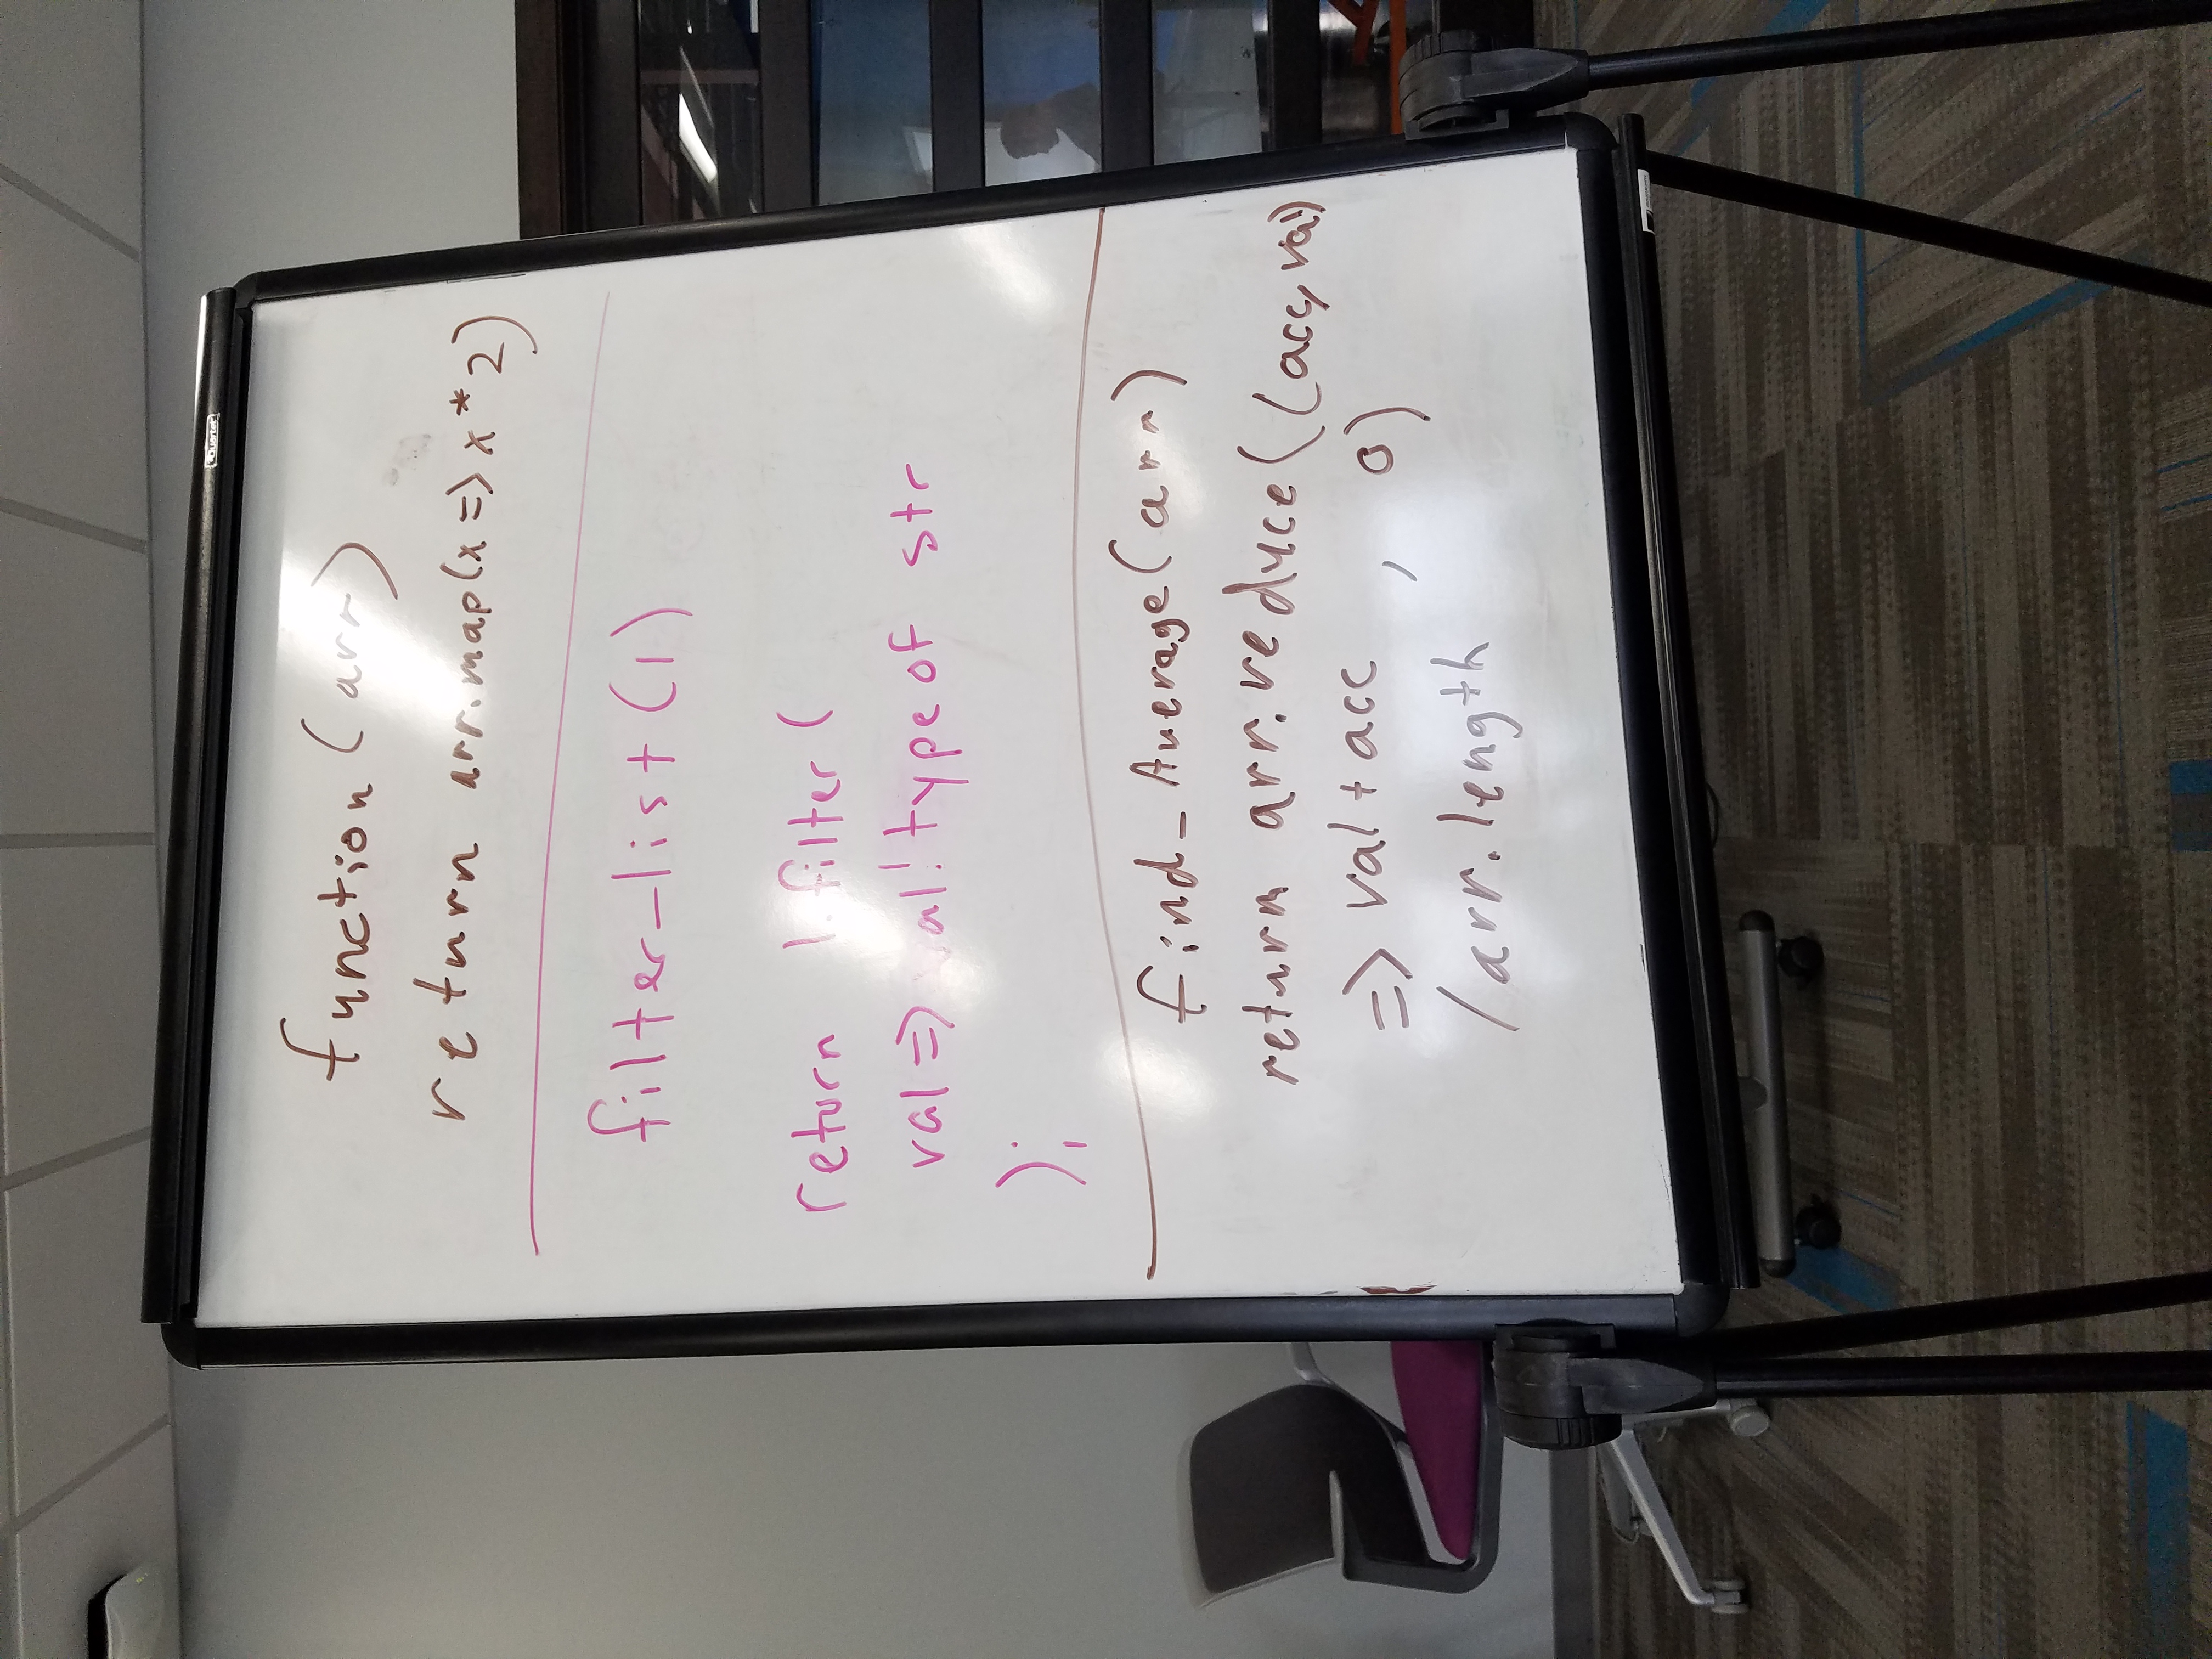 Quartet
function (arr)
return arr.map(x => x * 2)
filter_list (l)
return l.filter (
val => val! typeof str
);
find_Average (arr)
return arr.reduce( (acc, val)
=> val + acc , 0)
/ arr.length